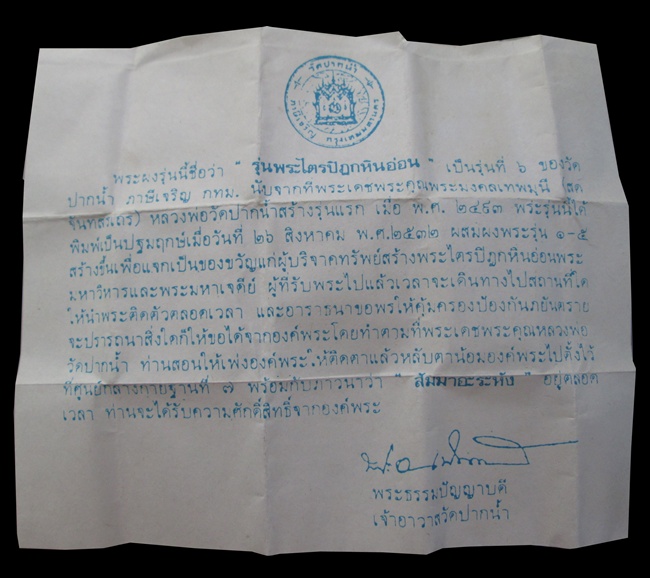 วัดปากน้ำ
ภาษีเจริญ กรุงเทพมหานคร
พระผงรุ่นนี้ชื่อว่า " รุ่นพระไตรปิฎกหินอ่อน " เป็นรุ่นที่ ๖ ของวัด
ปากน้ำ ภาษีเจริญ กทม. นับจากที่พระเดชพระคุณพระมงคลเทพมุนี (สด
จันทสโร) หลวงพ่อวัดปากน้ำสร้างรุ่นแรก เมื่อ พ.ศ. ๒๔๙๓ พระรุ่นนี้ได้
พิมพ์เป็นปฐมฤกษ์เมื่อวันที่ ๒๖ สิงหาคม พ.ศ.๒๕๓๒ ผสมผงพระรุ่น ๑-๕
สร้างขึ้นเพื่อแจกเป็นของขวัญแก่ผู้บริจาคทรัพย์สร้างพระไตรปิฎกหินอ่อนพระ
มหาวิหารและพระมหาเจดีย์ ผู้ที่รับพระไปแล้วเวลาจะเดินทางไปสถานที่ใด
ให้นำพระติดตัวตลอดเวลา และอาราธนาขอพรให้คุ้มครองป้องกันภยันตราย
จะปรารถนาสิ่งใดก็ให้ขอได้จากองค์พระโดยทำตามที่พระเดชพระคุณหลวงพ่อ
วัดปากน้ำ ท่านสอนให้เพ่งองค์พระให้ติดตาแล้วหลับตาน้อมองค์พระไปตั้งไว้
ที่ศูนย์กลางกายฐานที่ ๗ พร้อมกับภาวนาว่า " สัมมาอะระหัง " อยู่ตลอด
เวลา ท่านจะได้รับความศักดิ์สิทธิ์จากองค์พระ
พระธรรมปัญญาบดี
เจ้าอาวาสวัดปากน้ำ